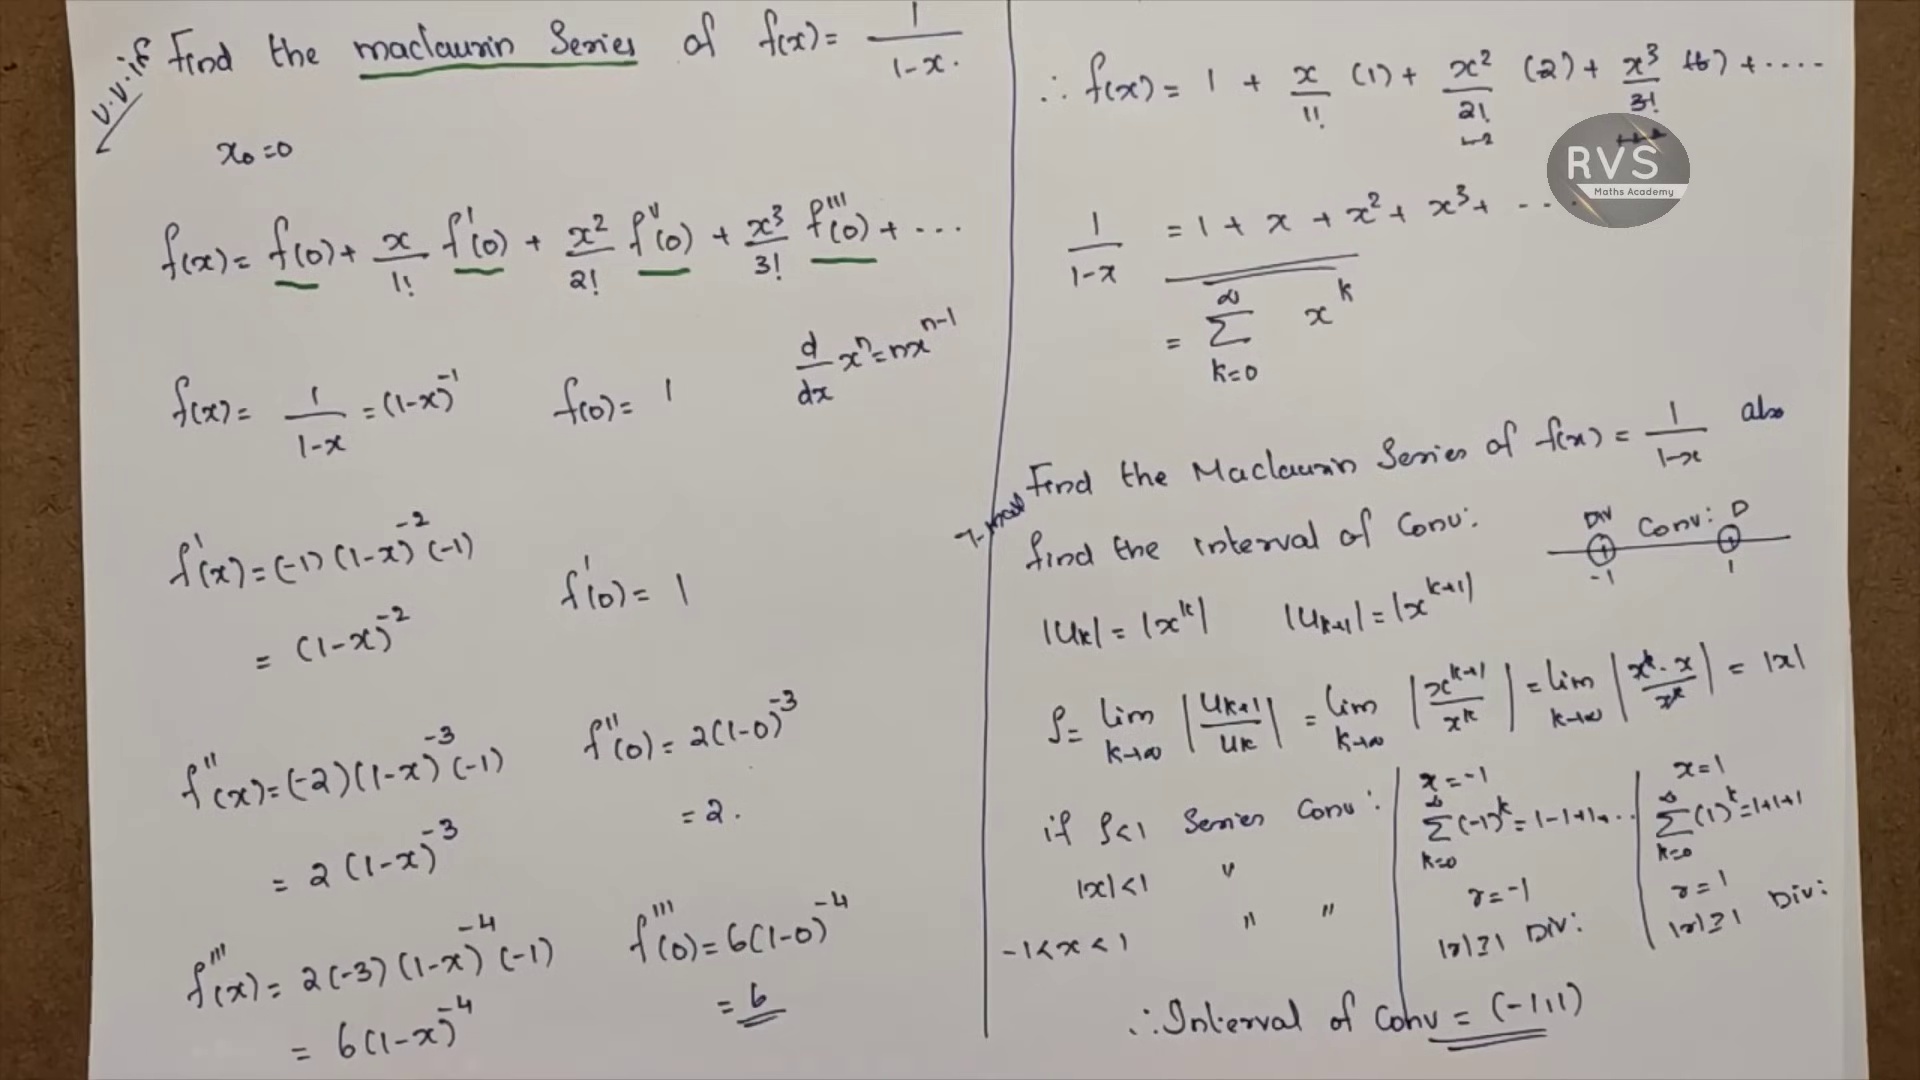 v.v.if
Find the maclaurin Series of f(x) = 1/(1-x).
x₀=0
f(x) = f(0) + x/1! f'(0) + x²/2! f''(0) + x³/3! f'''(0) + ...
d/dx xⁿ = nxⁿ⁻¹
f(x) = 1/(1-x) = (1-x)⁻¹ f(0) = 1
f'(x) = (-1)(1-x)⁻²(-1) f'(0) = 1
= (1-x)⁻²
f''(x) = (-2)(1-x)⁻³(-1) f''(0) = 2(1-0)⁻³
= 2(1-x)⁻³ = 2.
f'''(x) = 2(-3)(1-x)⁻⁴(-1) f'''(0) = 6(1-0)⁻⁴
= 6(1-x)⁻⁴ = 6
∴ f(x) = 1 + x/1! (1) + x²/2! (2) + x³/3! (6) + ....
RVS
Maths Academy
1/(1-x) = 1 + x + x² + x³ + ...
= ∞ Σ k=0 xᵏ
Find the Maclaurin Series of f(x) = 1/(1-x) also
find the interval of Conv:
Div Conv: D
-1 1
|Uₖ| = |xᵏ| |Uₖ₊₁| = |xᵏ⁺¹|
ρ = lim k→∞ |Uₖ₊₁/Uₖ| = lim k→∞ |xᵏ⁺¹/xᵏ| = lim k→∞ |xᵏ·x/xᵏ| = |x|
if ρ<1 Series Conv:
|x|<1 "
-1<x<1 " "
x=-1
∞ Σ k=0 (-1)ᵏ = 1-1+1...
r=-1
|r|≥1 Div:
x=1
∞ Σ k=0 (1)ᵏ = 1+1+1
r=1
|r|≥1 Div:
∴ Interval of Conv = (-1,1)